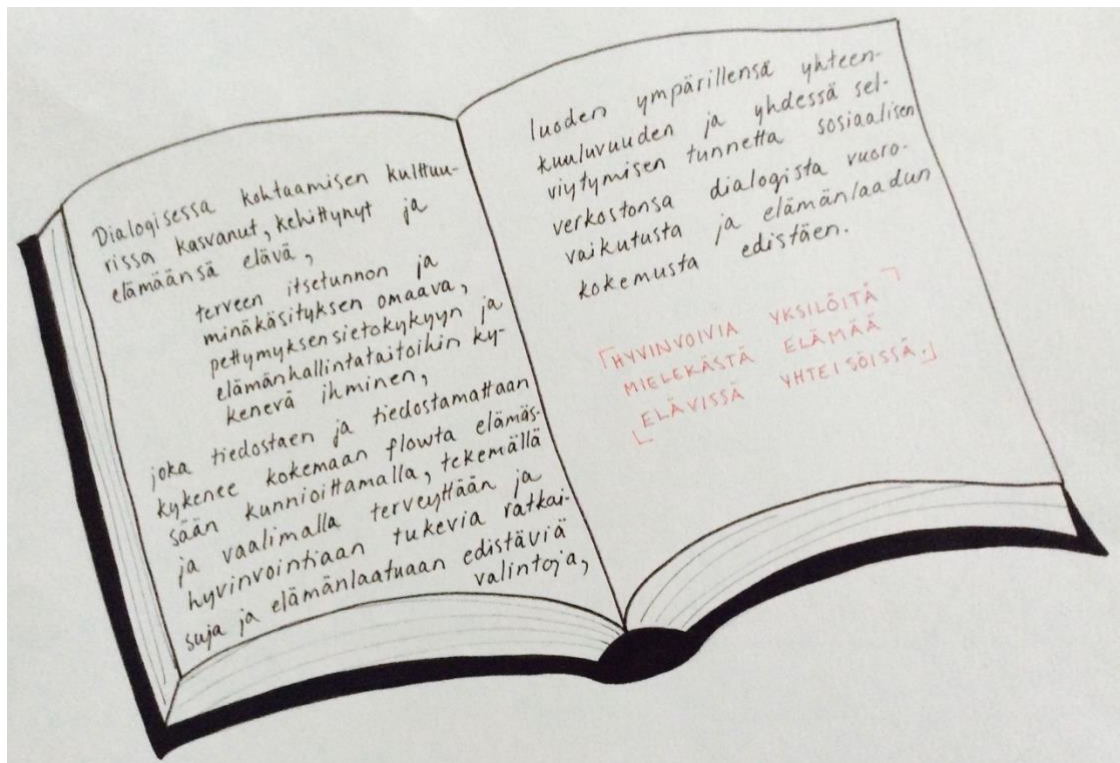 Dialogisessa kohtaamisen kulttuu-
rissa kasvanut, kehittynyt ja
elämäänsä elävä,
terveen itsetunnon ja
minäkäsityksen omaava,
pettymyksensietokykyyn ja
elämänhallintataitoihin ky-
kenevä ihminen,
joka tiedostaen ja tiedostamattaan
kykenee kokemaan flowta elämäs-
sään kunnioittamalla, tekemällä
ja vaalimalla terveyttään ja
hyvinvointiaan tukevia ratkai-
suja ja elämänlaatuaan edistäviä
valintoja,
luoden ympärillensä yhteen-
kuuluvuuden ja yhdessä sel-
viytymisen tunnetta sosiaalisen
verkostonsa dialogista vuoro-
vaikutusta ja elämänlaadun
kokemusta edistäen.
「HYVINVOIVIA YKSILÖITÄ
MIELEKÄSTÄ ELÄMÄÄ
ELÄVISSÄ YHTEISÖISSÄ.」